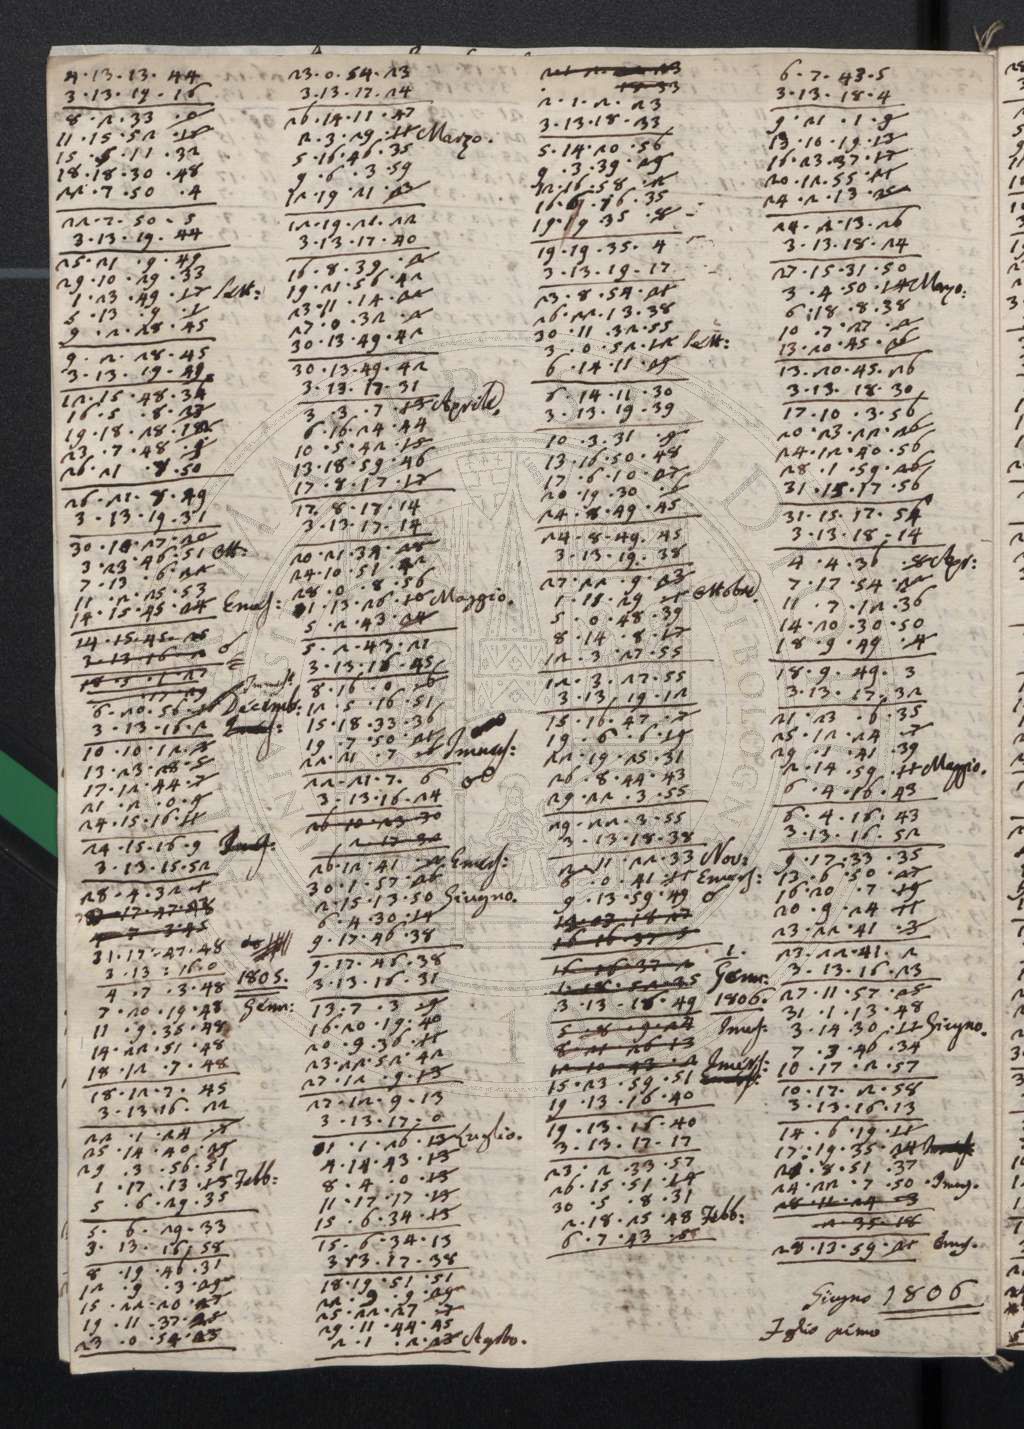 4.13.13.44
3.13.19.16
8.2.33.0
11.15.52.16
15.5.11.32
18.18.30.48
22.7.50.4
22.7.50.5
3.13.19.44
25.21.9.49
29.10.29.33
1.23.49.17 Sett:
5.13.9.1
9.2.28.45
9.2.28.45
3.13.19.49
12.15.48.34
16.5.8.23
19.18.28.12
23.7.48.1
26.21.8.50
26.21.8.49
3.13.19.31
30.10.27.20
3.23.46.51 Ott:
7.13.6.22
11.2.25.53
14.15.45.24 Emers:
14.15.45.25
3.13.16.2
18.5.1.27
6.20.56.16 Decemb:
3.13.16.2
10.10.12.15
13.23.28.5
17.12.44.7
21.2.0.9
24.15.16.11
24.15.16.9
3.13.15.52
28.4.32.1
31.17.47.48
3.13.16.0 1805.
4.7.3.48 Genn:
7.20.19.48
11.9.35.48
14.22.51.48
18.12.7.48
18.12.7.45
3.13.16.22
22.1.24.7
25.14.40.29
29.3.56.51
1.17.13.13 Febb:
5.6.29.35
5.6.29.33
3.13.16.58
8.19.46.31
12.9.3.29
15.22.20.27
19.11.37.25
23.0.54.23
23.0.54.23
3.13.17.24
26.14.11.47
2.3.29.11 Marzo.
5.16.46.35
9.6.3.59
12.19.21.23
12.19.21.22
3.13.17.40
16.8.39.2
19.21.56.42
23.11.14.22
27.0.32.2
30.13.49.42
30.13.49.42
3.13.17.31
3.3.7.13 Aprile.
6.16.24.44
10.5.42.15
13.18.59.46
17.8.17.17
17.8.17.14
3.13.17.14
20.21.34.28
24.10.51.42
28.0.8.56
1.13.26.10 Maggio.
5.2.43.24
5.2.43.21
3.13.16.45
8.16.0.6
12.5.16.51
15.18.33.36
19.7.50.21
22.21.7.6 Immers:
22.21.7.6
3.13.16.24
26.10.23.30
26.12.41.2 Emers:
30.1.57.26
2.15.13.50 Giugno.
6.4.30.14
9.17.46.38
9.17.46.38
3.13.16.31
13.7.3.9
16.20.19.40
20.9.36.11
23.22.52.42
27.12.9.13
27.12.9.13
3.13.17.0
1.1.26.13 Luglio.
4.14.43.13
8.4.0.13
11.17.17.13
15.6.34.13
15.6.34.13
3.13.17.38
18.19.51.51
22.9.9.29
25.22.27.7
29.11.44.45
2.1.2.23 Agosto.
2.1.2.23
3.13.18.33
5.14.20.56
9.3.39.29
12.16.58.2
16.6.16.35
19.19.35.8
19.19.35.4
3.13.19.17
23.8.54.21
26.22.13.38
30.11.32.55
3.0.52.12 Sett:
6.14.11.29
6.14.11.30
3.13.19.39
10.3.31.9
13.16.50.48
17.6.10.27
20.19.30.6
24.8.49.45
24.8.49.45
3.13.19.38
27.22.9.23
1.11.29.1 Ottobre.
5.0.48.39
8.14.8.17
12.3.27.55
12.3.27.55
3.13.19.12
15.16.47.7
19.6.6.19
22.19.25.31
26.8.44.43
29.22.3.55
29.22.3.55
3.13.18.38
2.11.22.33 Nov:
6.0.41.11 Emers:
9.13.59.49
13.03.18.27
16.16.37.5
16.16.37.2 1.
1.18.52.35 Genn:
3.13.18.49 1806.
5.8.9.24 Imers:
8.21.26.13
12.10.43.2 Imers:
15.23.59.51
19.13.16.40
19.13.16.40
3.13.17.17
23.2.33.57
26.15.51.14
30.5.8.31
2.18.25.48 Febb:
6.7.43.5
6.7.43.5
3.13.18.4
9.21.1.9
13.10.19.13
16.23.37.17
20.12.55.21
24.2.13.25
24.2.13.26
3.13.18.24
27.15.31.50
3.4.50.14 Marzo:
6.18.8.38
10.7.27.2
13.20.45.26
13.20.45.26
3.13.18.30
17.10.3.56
20.23.22.26
24.12.40.56
28.1.59.26
31.15.17.56
31.15.17.54
3.13.18.14
4.4.36.8 Apr:
7.17.54.22
11.7.12.36
14.20.30.50
18.9.49.4
18.9.49.3
3.13.17.32
21.23.6.35
25.12.24.7
29.1.41.39
2.14.59.11 Maggio.
6.4.16.43
6.4.16.43
3.13.16.52
9.17.33.35
13.6.50.27
16.20.7.19
20.9.24.11
23.22.41.3
23.22.41.2
3.13.16.23
27.11.57.25
31.1.13.48
3.14.30.11 Giugno.
7.3.46.34
10.17.2.57
10.17.2.58
3.13.16.13
14.6.19.11
17.19.35.24
21.8.51.37
24.22.7.50 Imers.
28.11.24.3
2.35.18
28.13.59.21 Emers.
Giugno 1806
Foglio primo